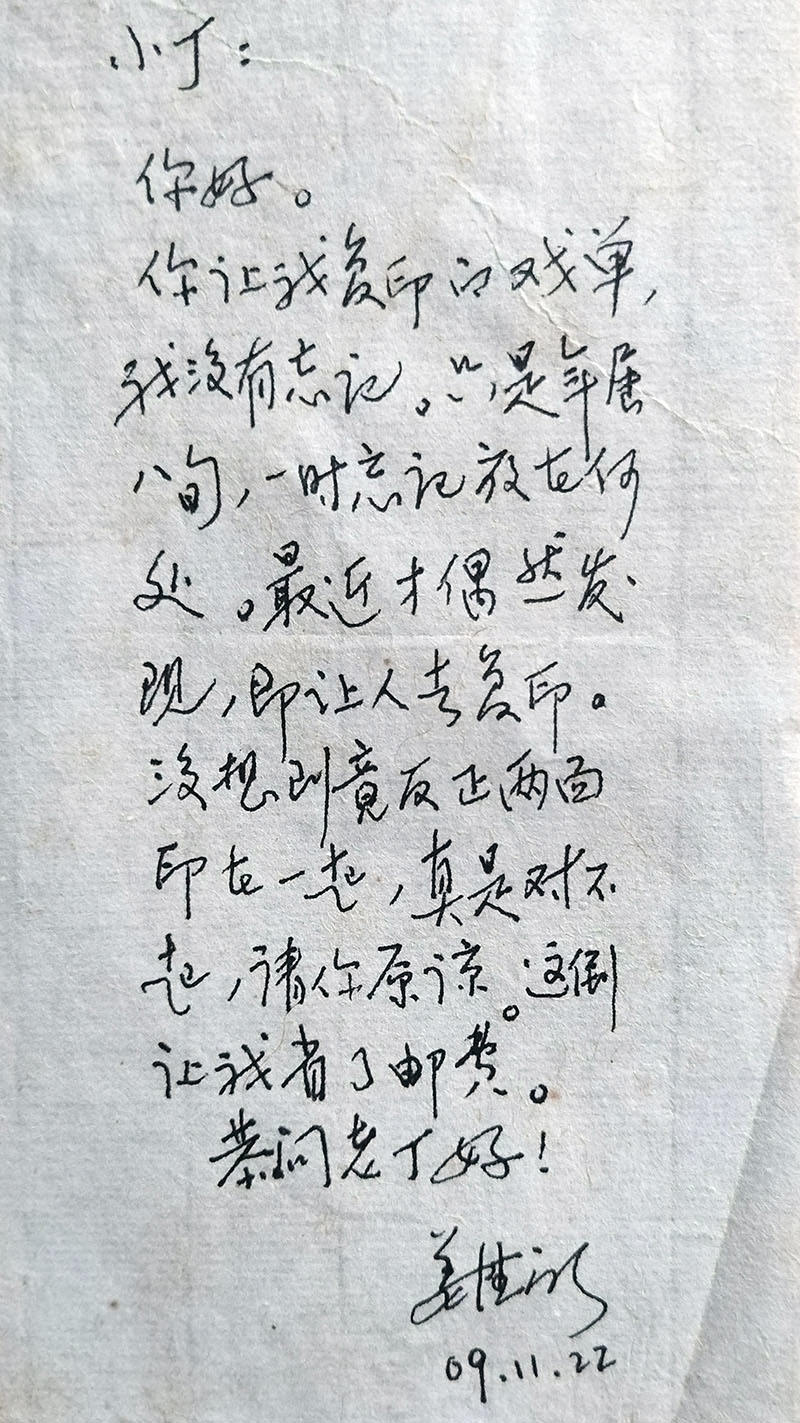 小丁：
你好。
你让我复印的戏单，
我没有忘记。只是年届
八旬，一时忘记放在何
处。最近才偶然发
现，即让人去复印。
没想到竟反正两面
印在一起，真是对不
起，请你原谅。这倒
让我省了邮费。
恭问老丁好！
姜维
09.11.22